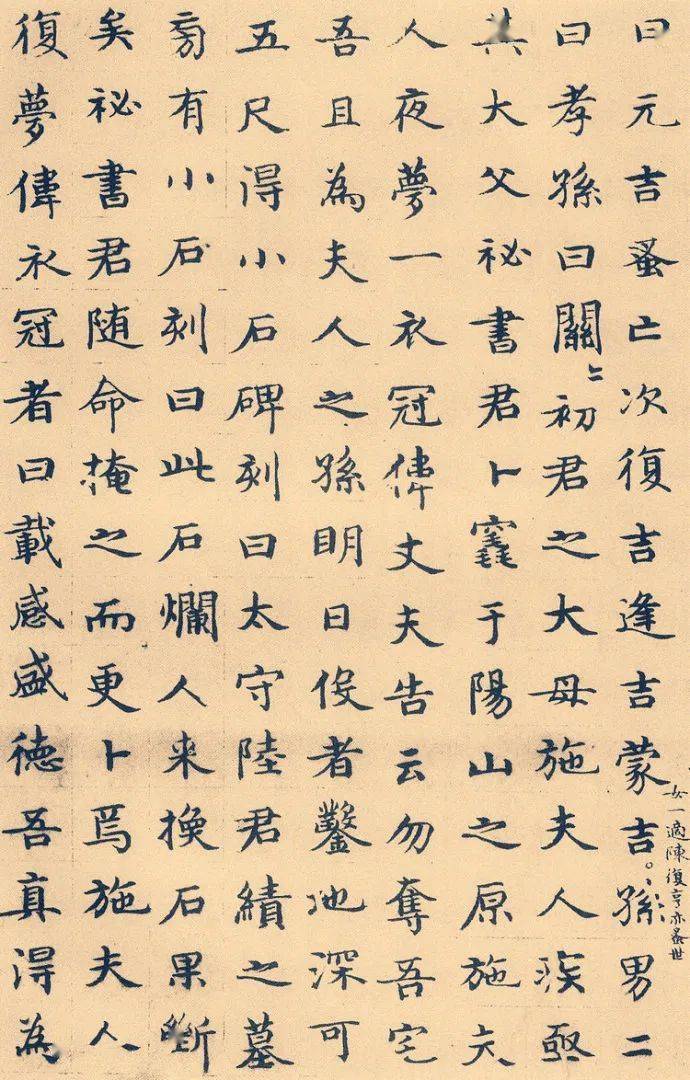 曰元吉蚤亡次復吉逢吉蒙吉。孫男二
女一適陳復亨亦蚤世
曰孝孫曰關〻初君之大母施夫人疾亟
其大父祕書君卜竁于陽山之原施夫
人夜夢一衣冠偉丈夫告云勿奪吾宅
吾且為夫人之孫明日役者鑿地深可
五尺得小石碑刻曰太守陸君績之墓
旁有小石刻曰此石爛人来換石果斷
矣祕書君随命掩之而更卜焉施夫人
復夢偉衣冠者曰載感盛德吾真得為